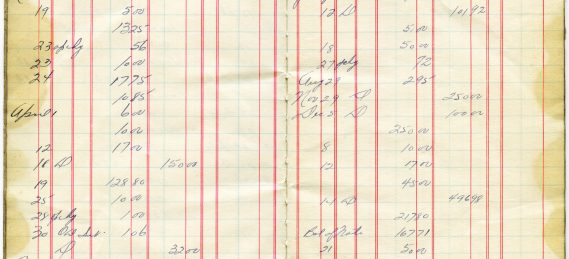 19 5 00
13 25
23 56
23 10 00
24 17 75
10 85
April 1 6 00
10 00
12 17 00
18 D 15 00
19 128 80
25 10 00
28 1 00
30 Int 1 06
D 32 00
12 D 101 92
5 00
18 50 00
27 72
Aug 29 2 95
Nov 29 D 250 00
Dec 5 D 100 00
250 00
8 10 00
12 17 00
45 00
14 D 496 98
217 80
Bal of Note 167 71
21 5 00